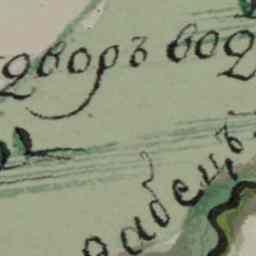 дворъ вод
рабецъ